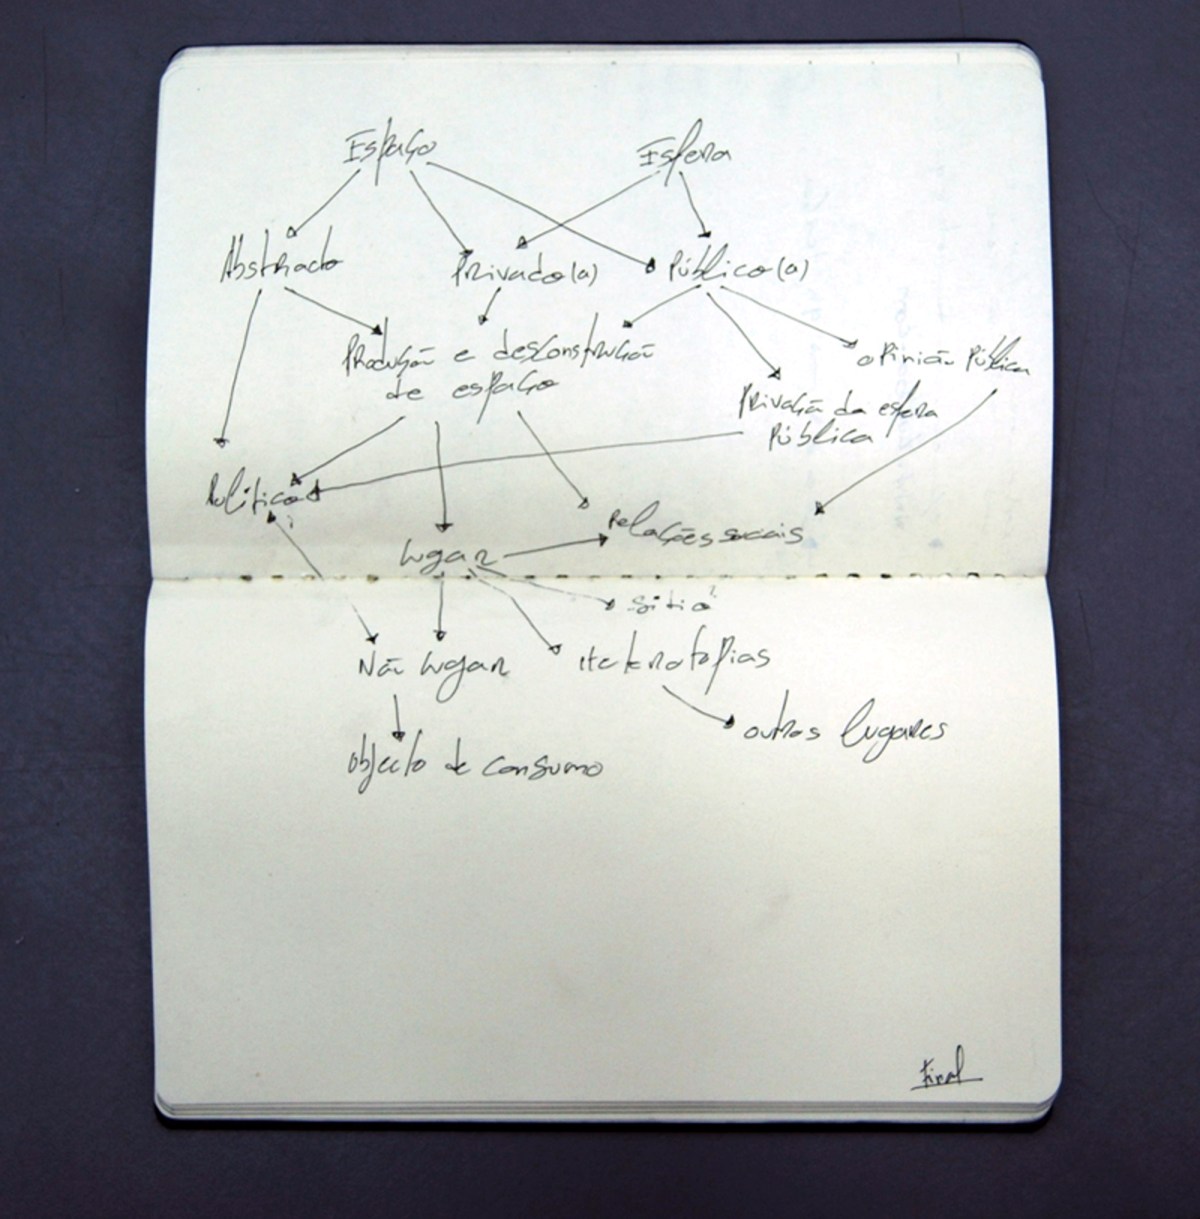 Espaço
Esfera
Abstracto
Privado(a)
Público(a)
Produção e desconstrução
de espaço
opinião Pública
Privação da esfera
Pública
Política
Relações sociais
Lugar
Sitio
Não Lugar
Heterotopias
outros lugares
objecto de consumo
Final